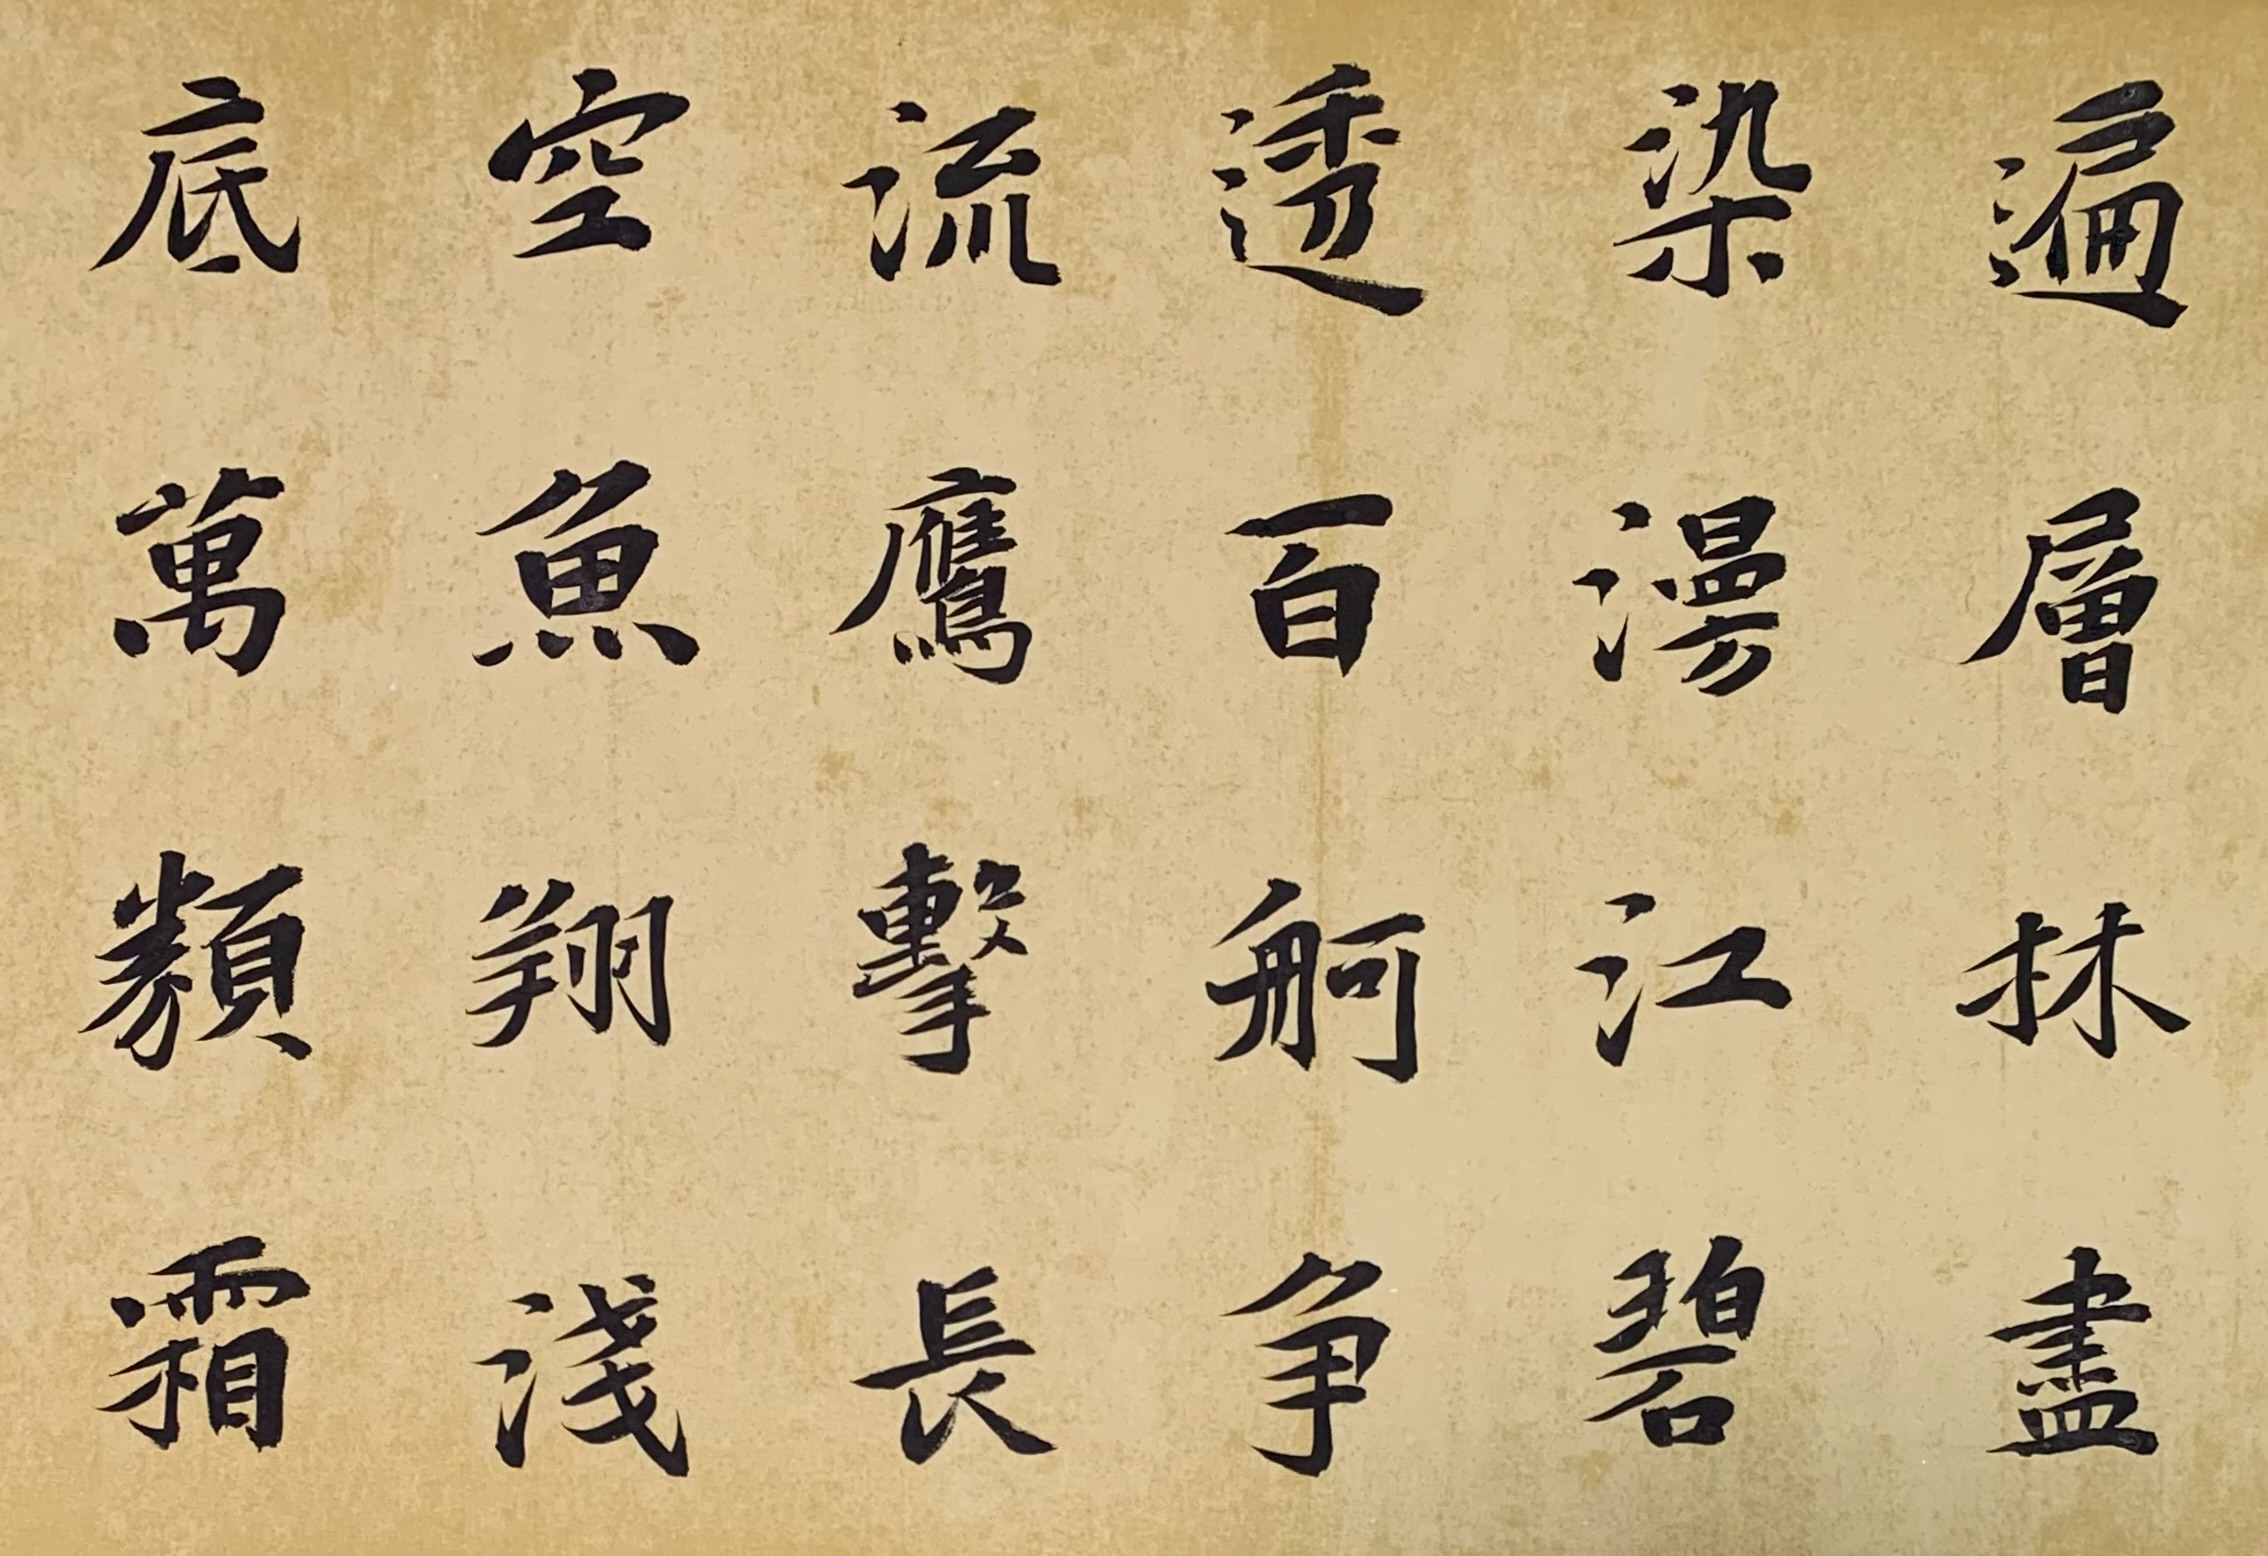 遍層林盡
染漫江碧
透百舸争
流鷹擊長
空魚翔淺
底萬類霜